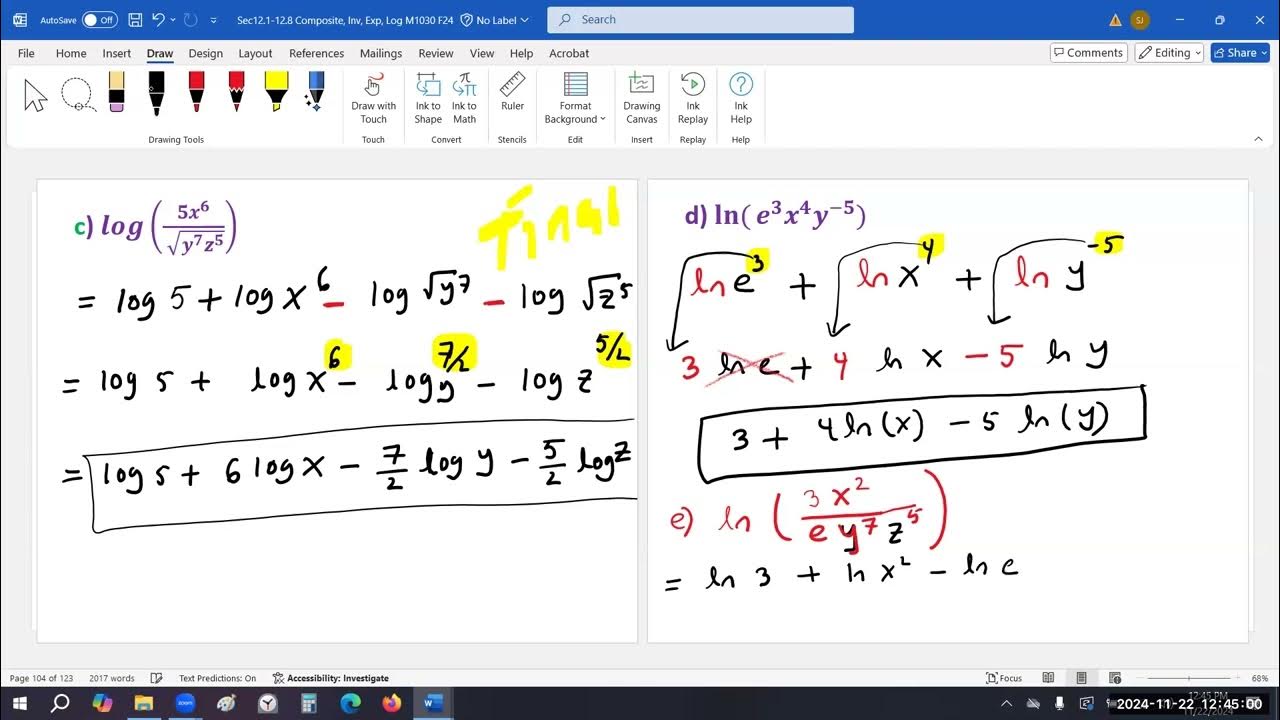 AutoSave Off Sec12.1-12.8 Composite, Inv, Exp, Log M1030 F24 No Label Search SJ
File Home Insert Draw Design Layout References Mailings Review View Help Acrobat Comments Editing Share
Draw with Touch
Ink to Shape
Ink to Math
Ruler
Format Background
Drawing Canvas
Ink Replay
Ink Help
Drawing Tools Touch Convert Stencils Edit Insert Replay Help
c) log (5x⁶ / √(y⁷z⁵))
Final
= log 5 + log x⁶ − log √y⁷ − log √z⁵
= log 5 + log x⁶ − log y^(7/2) − log z^(5/2)
= log 5 + 6 log x − 7/2 log y − 5/2 log z
d) ln( e³x⁴y⁻⁵)
ln e³ + ln x⁴ + ln y⁻⁵
3 ln e + 4 ln x − 5 ln y
3 + 4 ln(x) − 5 ln(y)
e) ln (3x² / e y⁷ z⁵)
= ln 3 + ln x² − ln e
Page 104 of 123 2017 words Text Predictions: On Accessibility: Investigate Focus 68%
zoom
2024-11-22 12:45:00